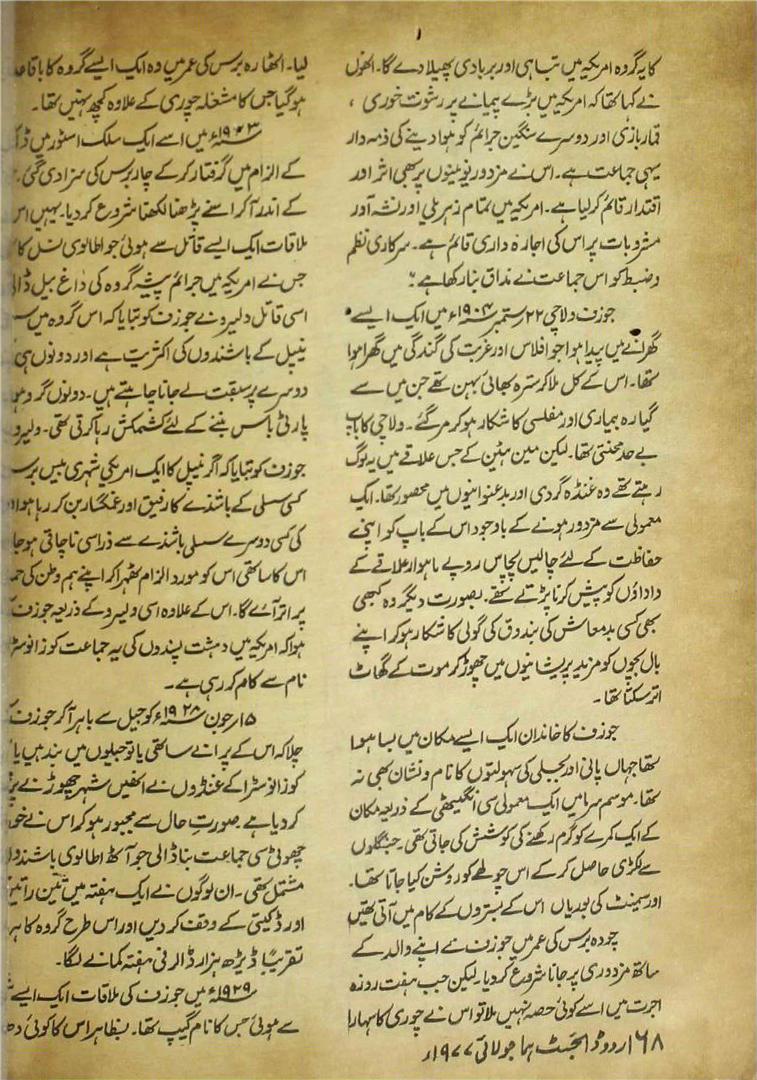 ۱
کا یہ گروہ امریکہ میں تباہی اور بربادی پھیلا دے گا۔ انھوں
نے کہا تھا کہ امریکہ میں بڑے پیمانے پر رشوت خوری ،
قمار بازی اور دوسرے سنگین جرائم کو ہوا دینے کی ذمہ دار
یہی جماعت ہے۔ اس نے مزدور یونینوں پر بھی اثر اور
اقتدار قائم کرلیا ہے۔ امریکہ میں تمام زہریلی اور نشہ آور
مشروبات پر اس کی اجارہ داری قائم ہے۔ سرکاری نظم
وضبط کو اس جماعت نے مذاق بنا رکھا ہے ؛
جوزف ولاچی ۲۲ ستمبر ۱۹۰۴ء میں ایک ایسے
گھرانے میں پیدا ہوا جو افلاس اور غربت کی گندگی میں گھرا ہوا
تھا۔ اس کے کل ملا کر سترہ بھائی بہن تھے جن میں سے
گیارہ بیماری اور مفلسی کا شکار ہو کر مر گئے۔ ولاچی کا باپ
بے حد محنتی تھا۔ لیکن مین ہٹن کے جس علاقے میں یہ لوگ
رہتے تھے وہ غنڈہ گردی اور بدعنوانیوں میں محصور تھا۔ ایک
معمولی سے مزدور ہونے کے باوجود اس کے باپ کو اپنے
حفاظت کے لئے چالیس پچاس روپے ماہوار علاقے کے
داداؤں کو پیش کرنا پڑتے تھے۔ بصورت دیگر وہ کبھی
بھی کسی بدمعاش کی بندوق کی گولی کا شکار ہو کر اپنے
بال بچوں کو مزید پریشانیوں میں چھوڑ کر موت کے گھاٹ
اتر سکتا تھا۔
جوزف کا خاندان ایک ایسے مکان میں بسا ہوا
تھا جہاں پانی اور بجلی کی سہولتوں کا نام و نشان بھی نہ
تھا۔ موسم سرما میں ایک معمولی سی انگیٹھی کے ذریعہ مکان
کے ایک کمرے کو گرم رکھنے کی کوشش کی جاتی تھی۔ جنگلوں
سے لکڑی حاصل کر کے اس چولھے کو روشن کیا جاتا تھا۔
اور سیمنٹ کی بوریاں اس کے بستروں کے کام میں آتی تھیں
چودہ برس کی عمر میں جوزف نے اپنے والد کے
ساتھ مزدوری پر جانا شروع کر دیا۔ لیکن جب ہفت روزہ
اجرت میں اسے کوئی حصہ نہیں ملا تو اس نے چوری کا سہارا
۱۶۸ اردو ڈائجسٹ ہما جولائی ۱۹۷۷ء
لیا۔ اٹھارہ برس کی عمر میں وہ ایک ایسے گروہ کا
ہو گیا جس کا مشغلہ چوری کے علاوہ کچھ نہیں تھا۔
۱۹۲۳ء میں اسے ایک سلک اسٹور میں
کے الزام میں گرفتار کر کے چار برس کی سزا دی گئی۔
کے اندر آ کر اسنے پڑھنا لکھنا شروع کر دیا۔ یہیں اس
ملاقات ایک ایسے قاتل سے ہوئی جو اطالوی نسل کا
جس نے امریکہ میں جرائم پیشہ گروہ کی داغ بیل ڈالی
اسی قاتل دلیرو نے جوزف کو بتایا کہ اس گروہ میں
نیپل کے باشندوں کی اکثریت ہے اور دونوں ہی
دوسرے پر سبقت لے جانا چاہتے ہیں۔ دونوں گروہ
پارٹی باس بننے کے لئے کشمکش رہا کرتی تھی۔ ولیرو
جوزف کو بتایا کہ اگر نیپل کا ایک امریکی شہری بیس برس
کسی سسلی کے باشندے کا رفیق اور غمگسار بن کر رہا ہو اور
کی کسی دوسرے سسلی باشندے سے ذرا سی ناچاقی ہو جا
اس کا ساتھی اس کو مورد الزام ٹھہرا کر اپنے ہم وطن کی
پر اتر آے گا۔ اس کے علاوہ اسی ولیرو کے ذریعہ جوزف
ہوا کہ امریکہ میں دہشت پسندوں کی یہ جماعت کوزانوسٹرا
نام سے کام کر رہی ہے۔
۱۵ جون ۱۹۲۸ء کو جیل سے باہر آ کر جوزف
چلا کہ اس کے پرانے ساتھی یا تو جیلوں میں بند ہیں یا
کوزانوسٹرا کے غنڈوں نے انھیں شہر چھوڑنے پر
کر دیا ہے۔ صورتِ حال سے مجبور ہو کر اس نے خود
چھوٹی سی جماعت بنا ڈالی جو آٹھ اطالوی باشندوں
مشتمل تھی۔ ان لوگوں نے ایک ہفتہ میں تین راتیں
اور ڈکیتی کے وقف کر دیں اور اس طرح گروہ کا ہر
تقریباً ڈیڑھ ہزار ڈالر فی ہفتہ کمانے لگا۔
۱۹۲۹ء میں جوزف کی ملاقات ایک ایسے
سے ہوئی جس کا نام گیپ تھا۔ بظاہر اس کا کوئی